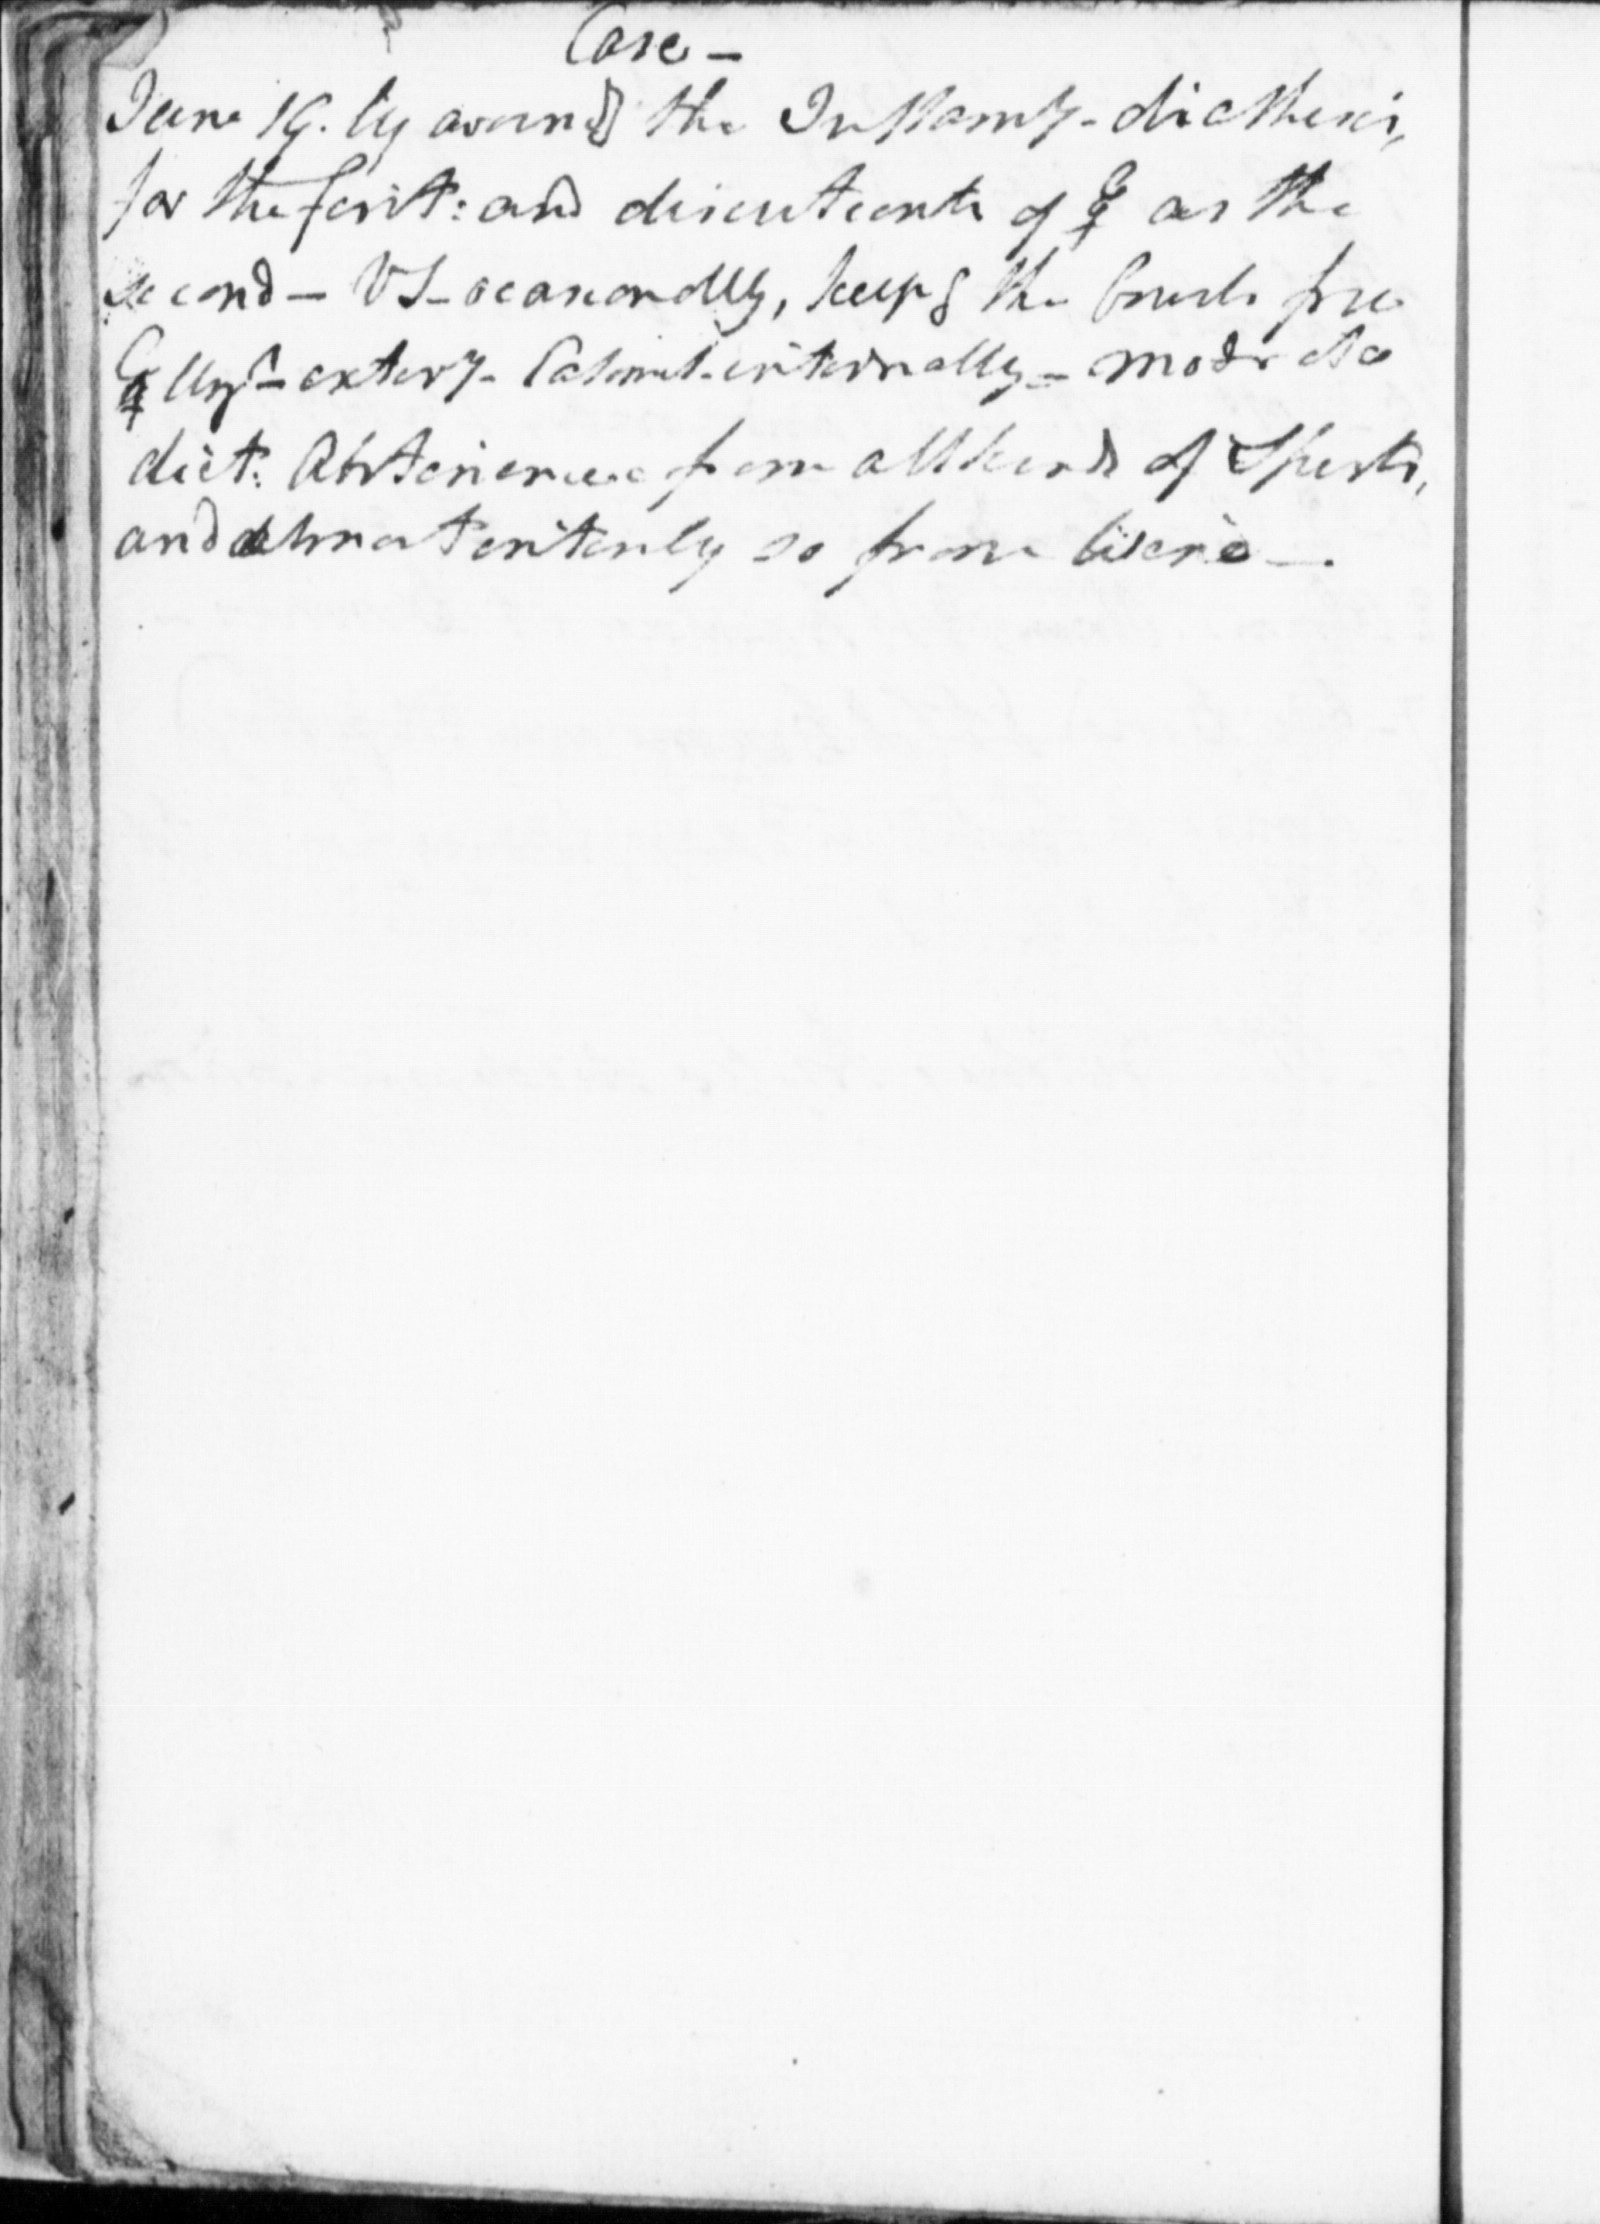 Case –
June 19. by avoiding the Inflamy - diathesis,
for the first: and discutients of ☿ as the
second – VS - occasionally, keepg the bowels free
☿ Ungt - extery - Calomel - internally – moderate
diet: Abstinence from all kinds of Spirits,
and almost entirely so from Wine –.